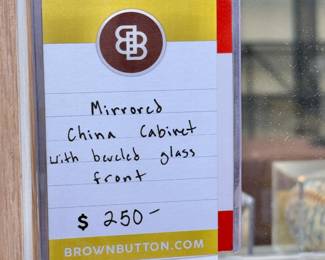 BB
Mirrored
China Cabinet
with beveled glass
front
$ 250-
BROWNBUTTON.COM